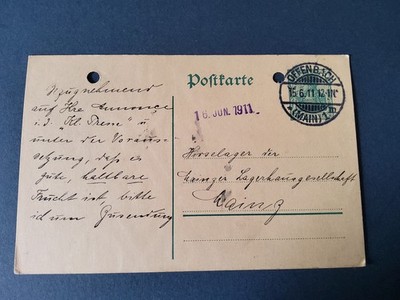 Postkarte
OFFENBACH
15.6.11.12-1N.
*(MAIN)1*
16. JUN. 1911.
Bezugnehmend
auf Ihre Annonce
i. d. "Kl. Presse" u
unter der Voraus-
setzung, daß es
gute, haltbare
Frucht ist bitte
ich um Zusendung
Obstlager der
Mainzer Lagerhausgesellschaft
Mainz